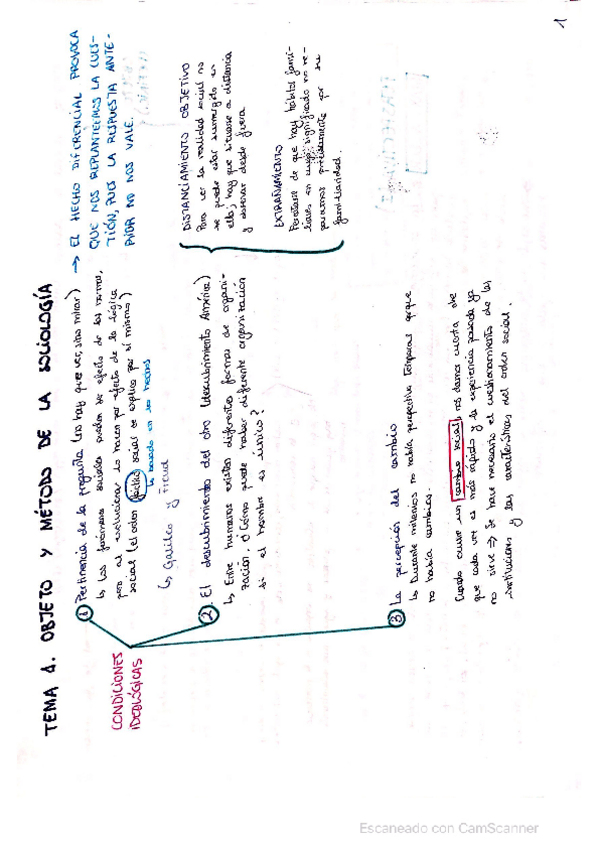 1
TEMA 1. OBJETO Y MÉTODO DE LA SOCIOLOGÍA
CONDICIONES
IDEOLÓGICAS
1 Pertinencia de la pregunta (no hay que ver, sino mirar)
↳ los fenómenos sociales pueden ser efecto de las normas,
pero al evolucionar lo hacen por efecto de la lógica
social (el orden social se explica por sí mismo)
↳ basado en los hechos
↳ Galileo y Freud
→ EL HECHO DIFERENCIAL PROVOCA
QUE NOS REPLANTEEMOS LA CUES-
TIÓN, PUES LA RESPUESTA ANTE-
RIOR NO NOS VALE.
2 El descubrimiento del otro (descubrimiento América)
↳ Entre humanos existen diferentes formas de organi-
zación. ¿Cómo puede haber diferente organización
si el hombre es único?
DISTANCIAMIENTO OBJETIVO
Para ver la realidad social no
se puede estar sumergido en
ella; hay que situarse a distancia
y observar desde fuera
EXTRAÑAMIENTO
Percatarse de que hay hábitos fami-
liares en cuyo significado no re-
paramos precisamente por su
familiaridad.
3 La percepción del cambio
↳ Durante milenios no había perspectiva temporal porque
no había cambios.
Cuando ocurre un cambio social nos damos cuenta de
que cada vez es más rápido y la experiencia pasada ya
no sirve ⇒ Se hace necesario el cuestionamiento de las
instituciones y las características del orden social.
Escaneado con CamScanner